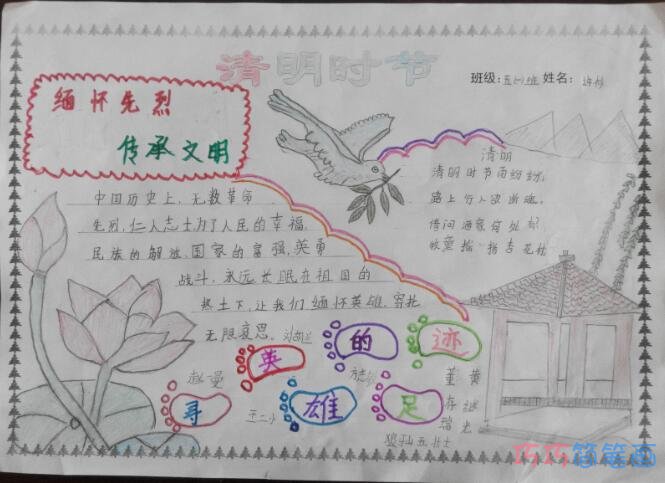 清明时节
班级:五(4)班 姓名:
缅怀先烈
传承文明
清明
清明时节雨纷纷,
路上行人欲断魂。
借问酒家何处有
牧童遥指杏花村
中国历史上,无数革命
先烈,仁人志士为了人民的幸福,
民族的解放,国家的富强,英勇
战斗,永远长眠在祖国的
热土下,让我们缅怀英雄,寄托
无限哀思。
刘胡兰
寻英雄的足迹
赵一曼
王二小
董存瑞
黄继光
狼牙山五壮士
巧巧简笔画